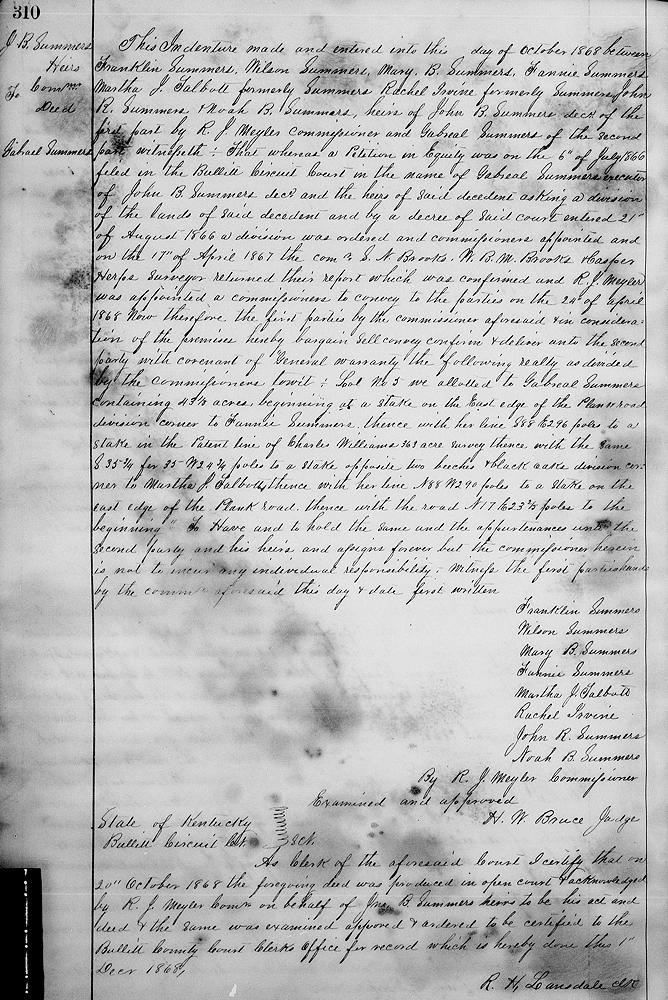 310
J. B. Summers
Heirs
To Comr's
Deed
Gabrael Summers
This Indenture made and entered into this day of October 1868 between
Franklin Summers, Wilson Summers, Mary. B. Summers, Fannie Summers
Martha J. Talbott formerly Summers Rachel Irvine formerly Summers John
R. Summers & Noah B. Summers, heirs of John B. Summers decd of the
first part by R. J. Meyler commissioner and Gabreal Summers of the second
part witnesseth: That whereas a Petition in Equity was on the 6" of July 1866
filed in the Bullitt Circuit Court in the name of Gabreal Summers executor
of John B. Summers decd and the heirs of said decedent asking a division
of the lands of said decedent and by a decree of said court entered 21"
of August 1866 a division was ordered and commissioners appointed and
on the 17" of April 1867 the com's S. N. Brooks. W. B. M. Brooks & Casper
Herps Surveyor returned their report which was confirmed and R. J. Meyler
was appointed a commissioners to convey to the parties on the 24" of April
1868 Now therefore the first parties by the commissioner aforesaid & in considera-
tion of the premises hereby bargain sell convey confirm & deliver unto the second
party with covenant of General warranty the following realty as divided
by the commissioners towit: Lot No 5 we allotted to Gabreal Summers
containing 43½ acres beginning at a stake on the East edge of the Plank road
division corner to Fannie Summers thence with her line S 88 E 296 poles to a
stake in the Patent line of Charles Williams 363 acre survey thence with the same
S 35¼ for 35 W 24¾ poles to a stake opposite two beeches & black oake division cor-
ner to Martha J. Talbotts, thence with her line N 88 W 290 poles to a stake on the
east edge of the Plank road. thence with the road N 17 E 23⅔ poles to the
beginning" To Have and to hold the same and the appurtenances unto the
second party and his heirs and assigns forever but the commissioner herein
is not to incur any individual responsibility. Witness the first parties hands
by the commr aforesaid this day & date first written
Franklin Summers
Wilson Summers
Mary B. Summers
Fannie Summers
Martha J. Talbott
Rachel Irvine
John R. Summers
Noah B. Summers
By R. J. Meyler Commissioner
Examined and approved
H. W. Bruce Judge
State of Kentucky
Bullitt Circuit Ct. Sct.
As Clerk of the aforesaid Court I certify that on
20" October 1868 the foregoing deed was produced in open court & acknowledged
by R. J. Meyler Comr on behalf of Jno. B Summers heirs to be his act and
deed & the same was examined approved & ordered to be certified to the
Bullitt County Court Clerks Office for record which is hereby done this 1"
Decr 1868,
R. H, Lansdale clk